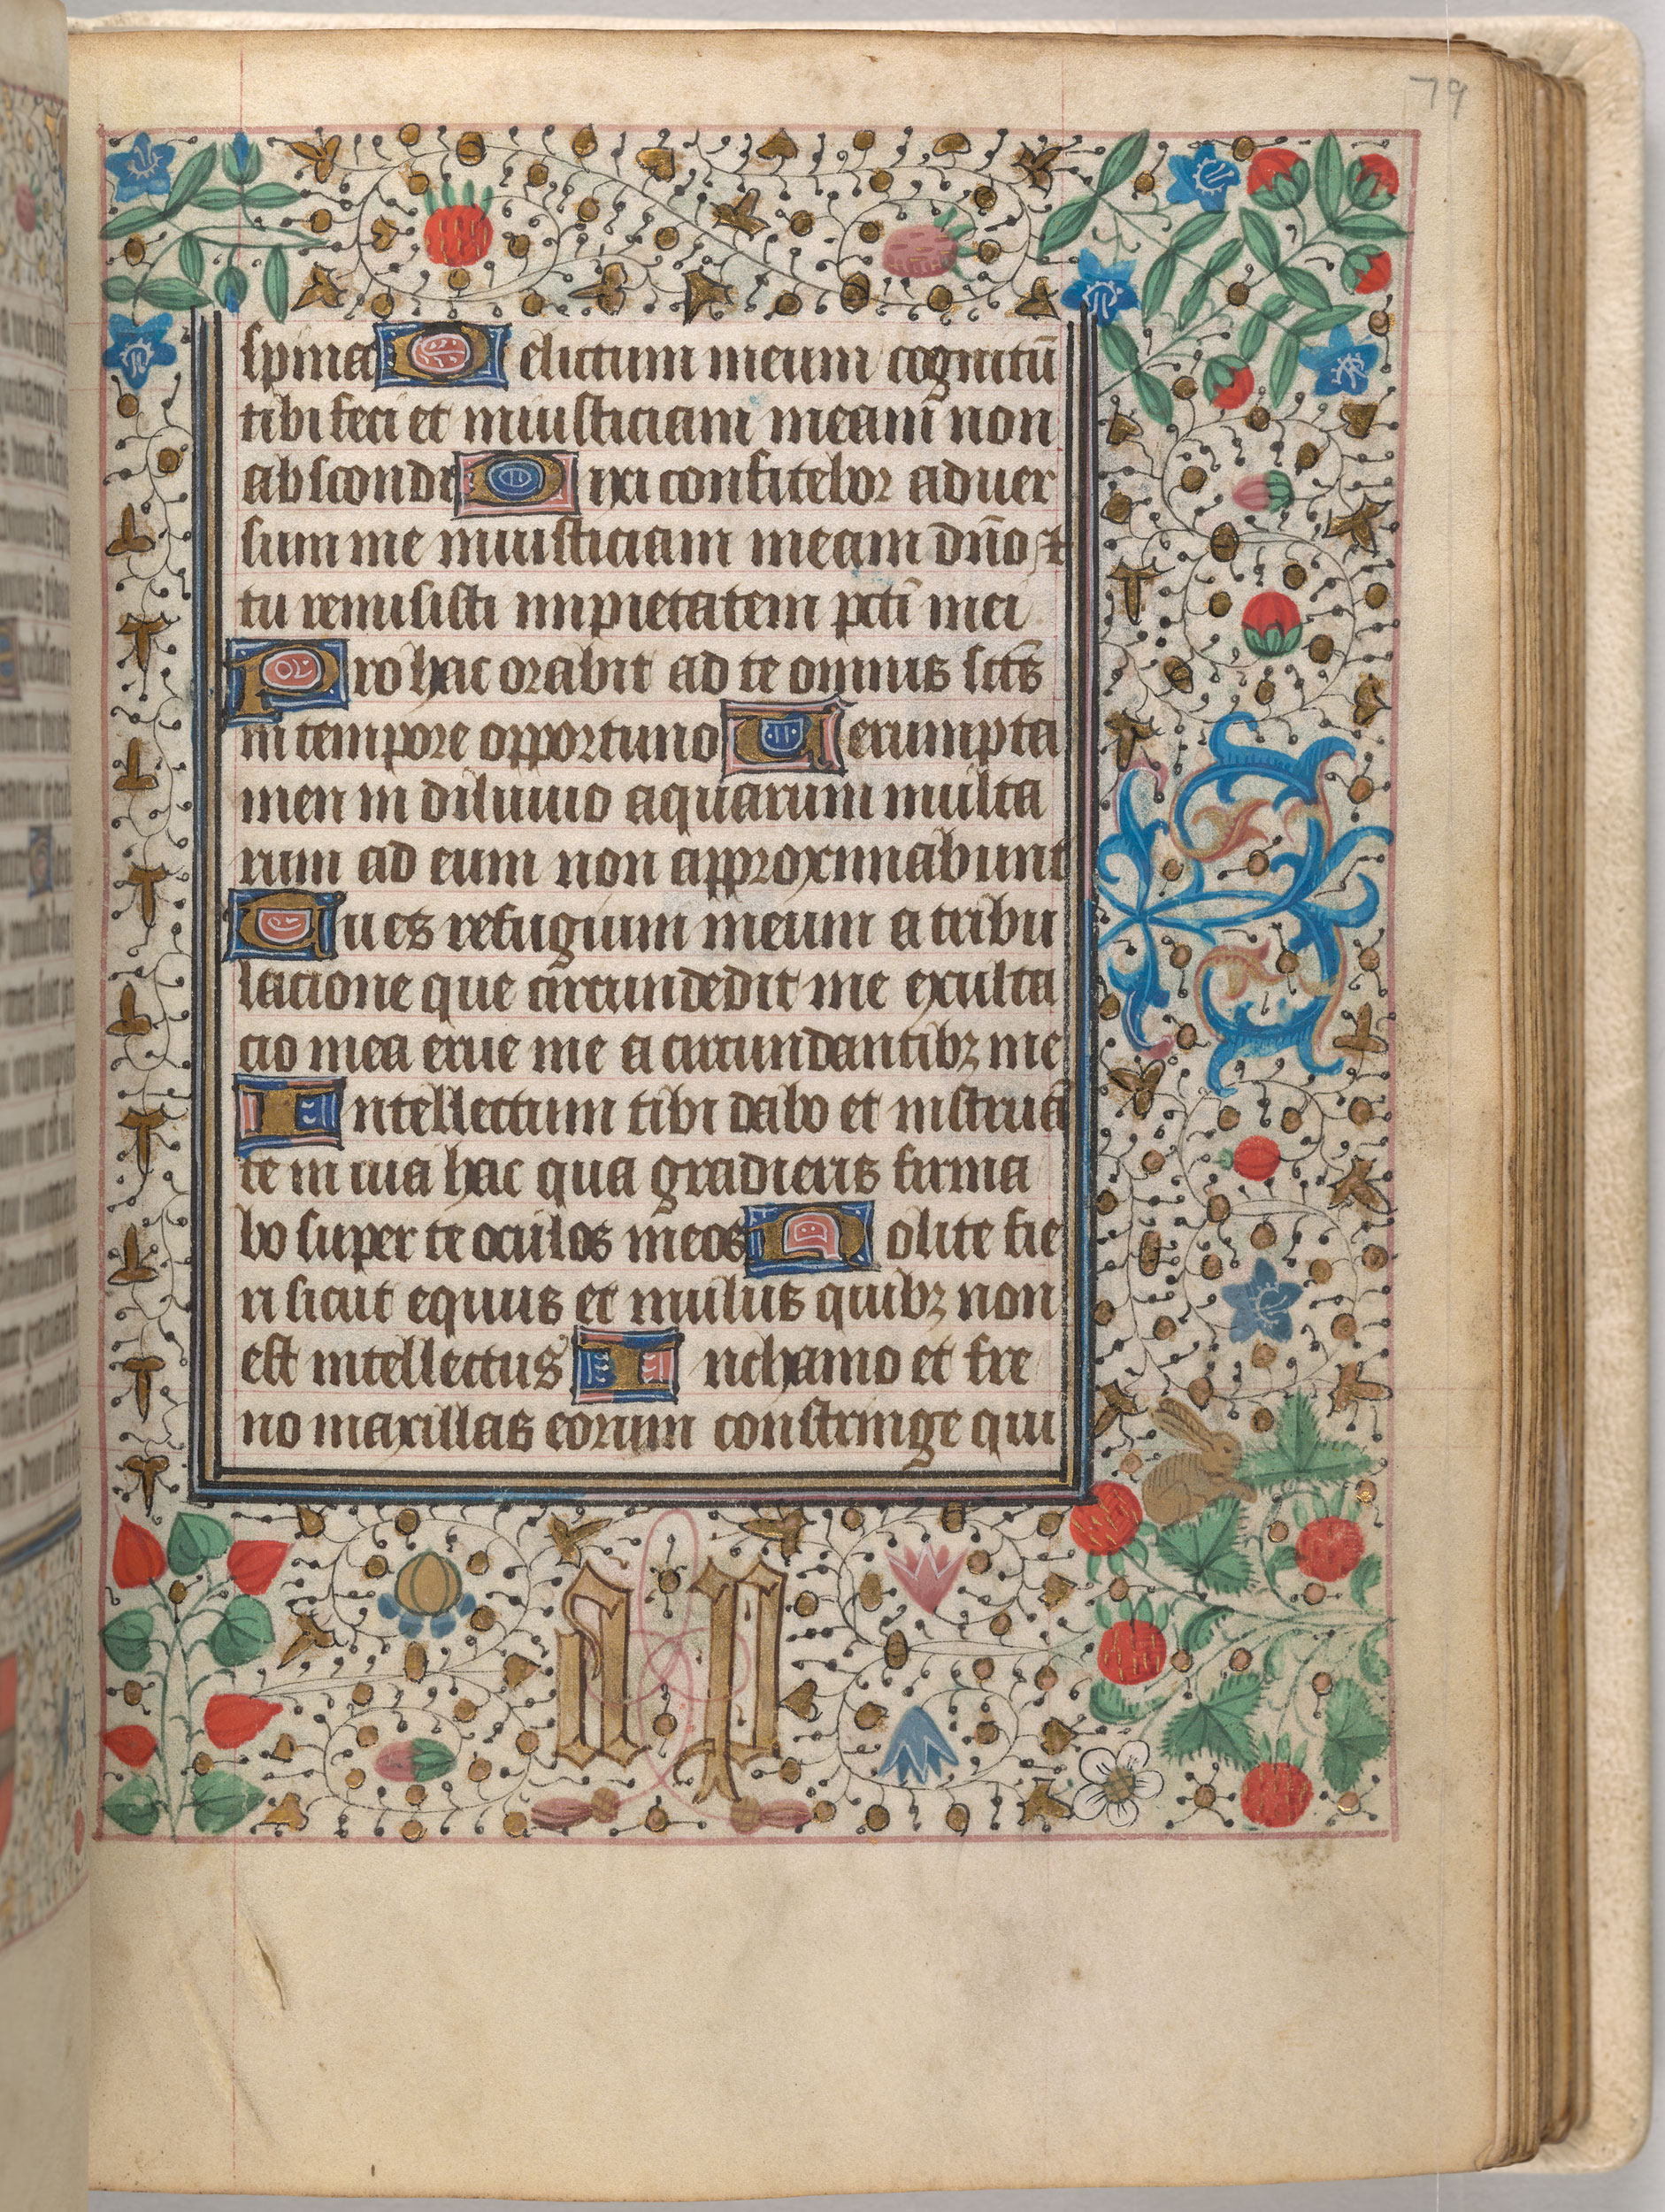 79
spina Delictum meum cognitū
tibi feci et iniusticiam meam non
abscondi Dixi confitebor aduer
sum me iniusticiam meam dño et
tu remisisti impietatem pcti mei
Pro hac orabit ad te omnis scts
in tempore opportuno Verumpta
men in diluuio aquarum multa
rum ad eum non approximabunt
Tu es refugium meum a tribu
lacione que circundedit me exulta
cio mea erue me a circundantibꝫ me
Intellectum tibi dabo et instruā
te in uia hac qua gradieris firma
bo super te oculos meos Nolite fie
ri sicut equus et mulus quibꝫ non
est intellectus In chamo et fre
no maxillas eorum constringe qui